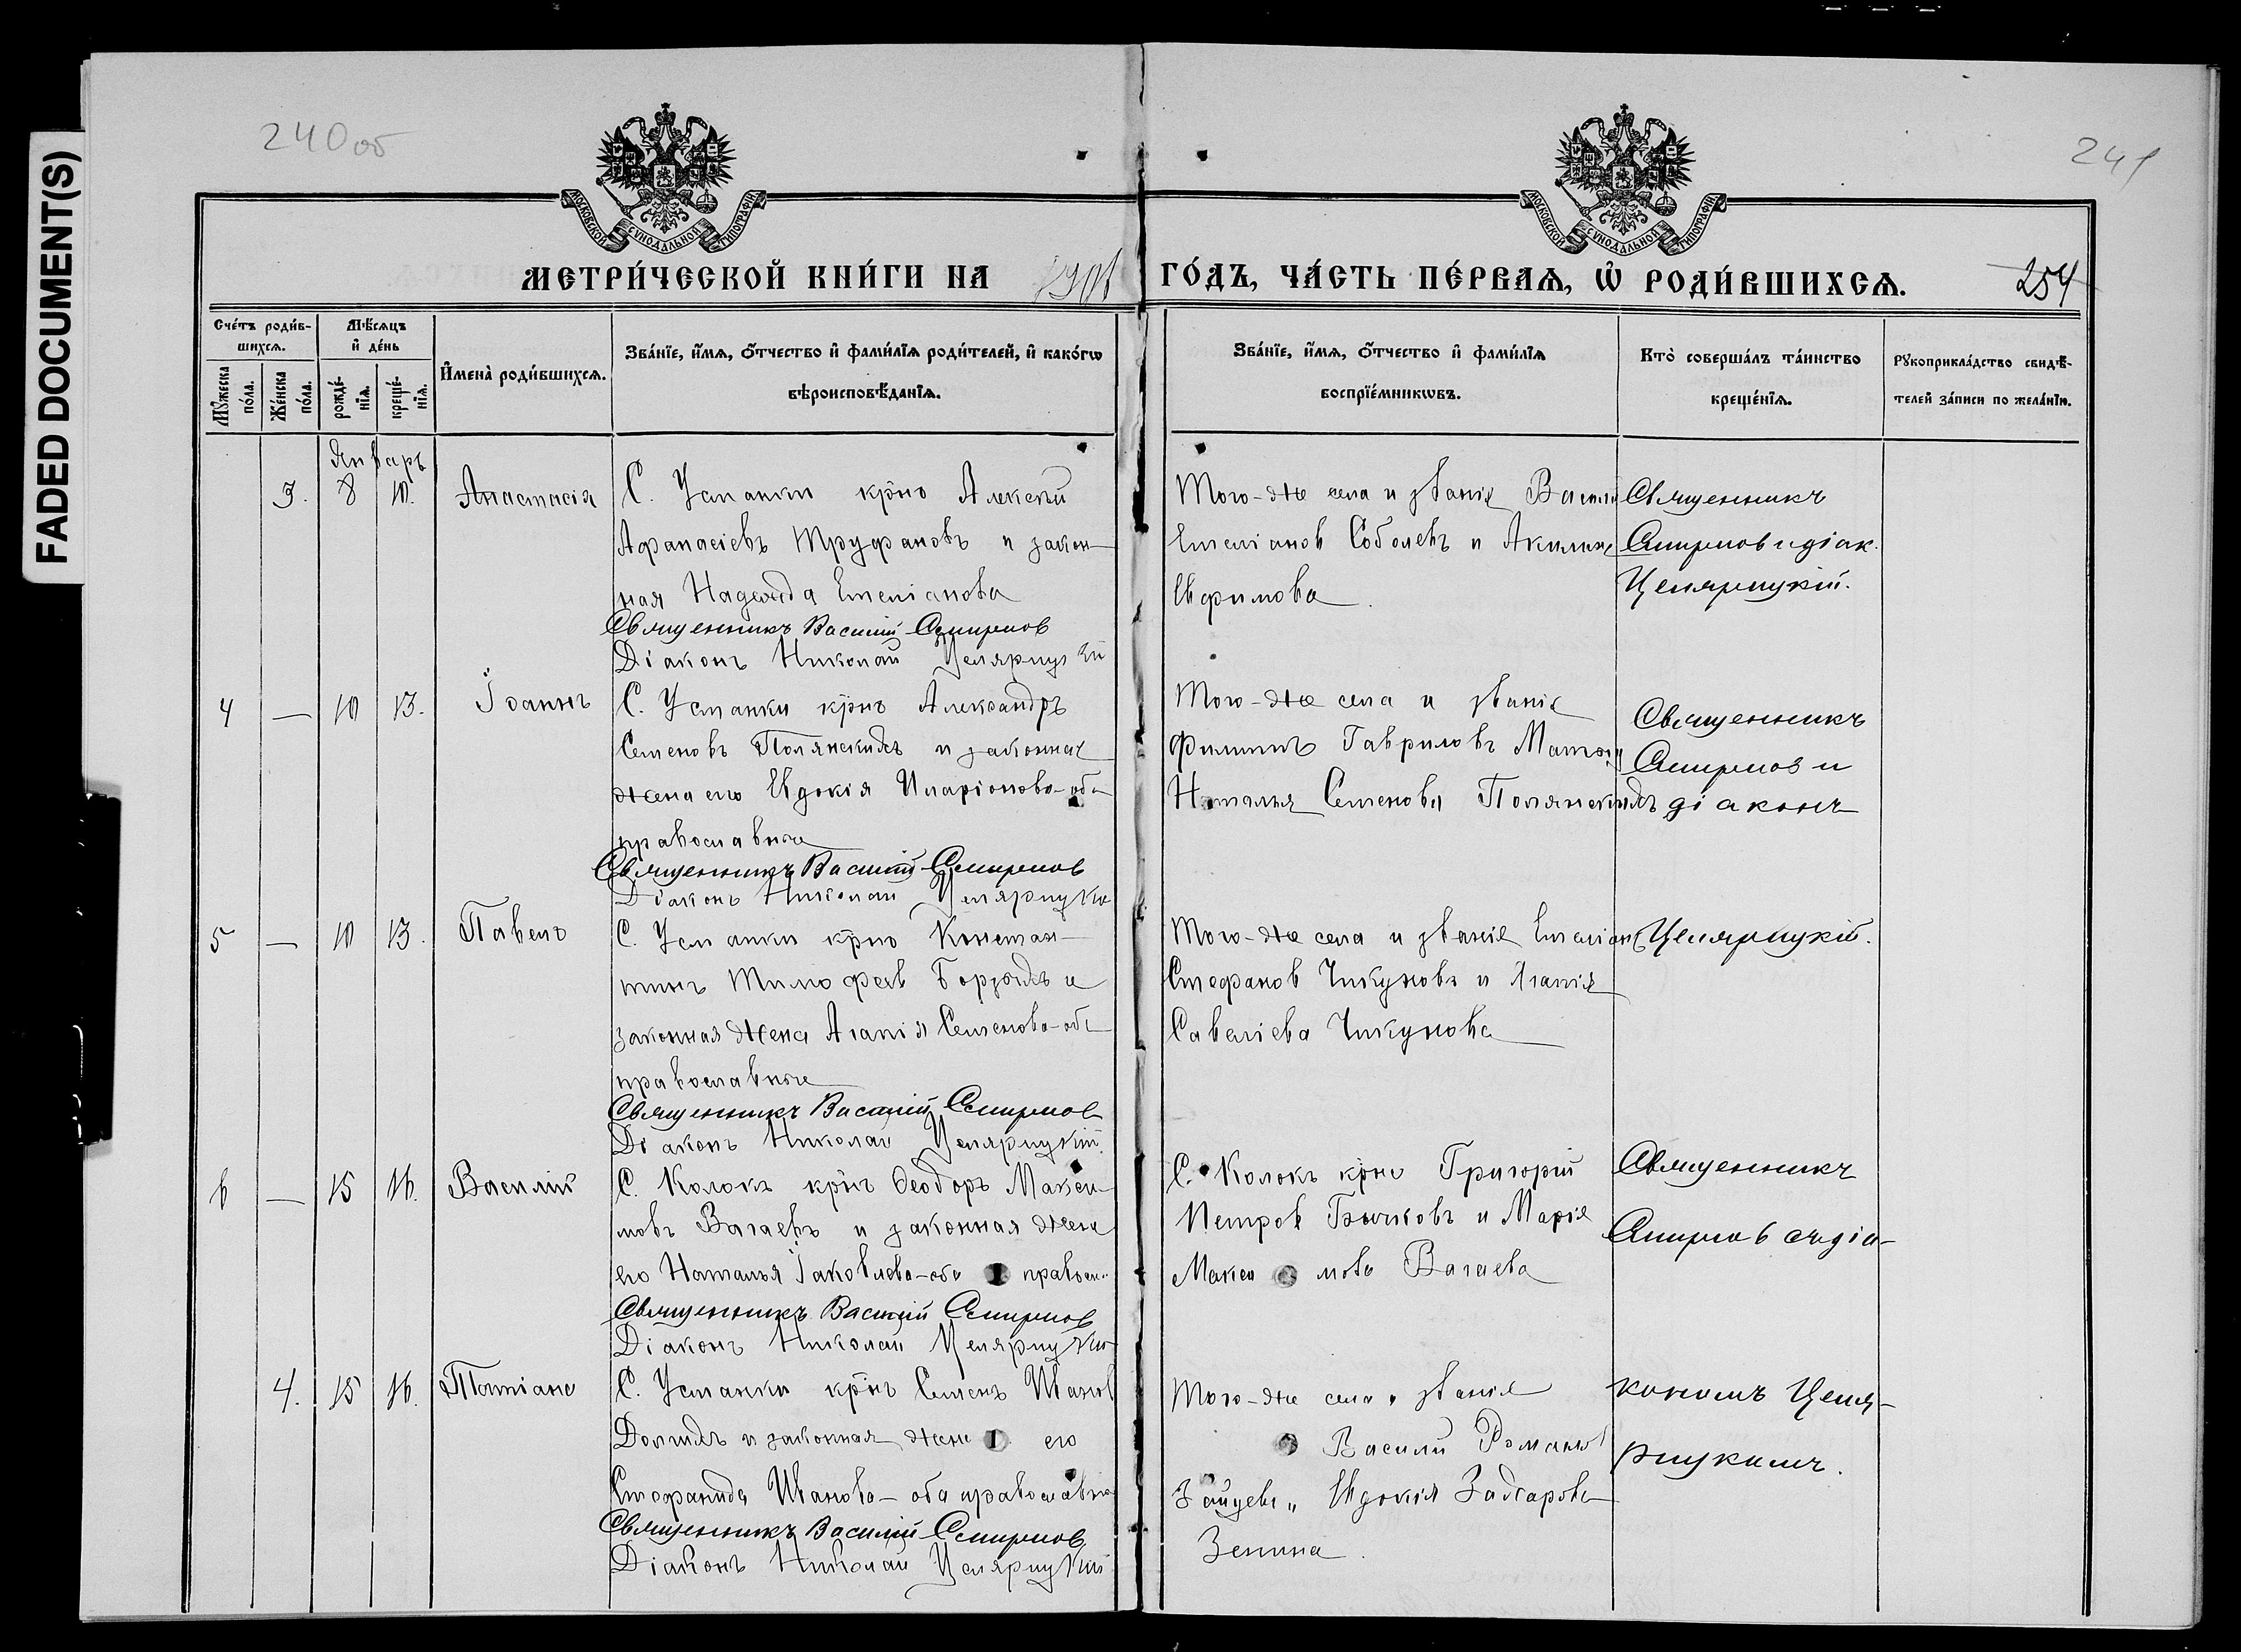 FADED DOCUMENT(S)
240 об
241
МОСКОВСКОЙ СУНОДАЛЬНОЙ ТИПОГРАФІИ
МОСКОВСКОЙ СУНОДАЛЬНОЙ ТИПОГРАФІИ
МЕТРИ́ЧЕСКОЙ КНИ́ГИ НА
ГО́ДЪ, ЧА́СТЬ ПЕ́РВАѦ, Ѡ҆ РОДИ́ВШИХСѦ.
254
Сче́тъ роди́в-
шихсѧ.
Мѣ́сѧцъ
и҆ де́нь
Мꙋ́жеска
по́ла.
Же́нска
по́ла.
рожде́-
нїѧ.
креще́-
нїѧ.
И҆мена̀ роди́вшихсѧ.
Зва́нїе, и҆́мѧ, ѻ҆́тчество и҆ фамѝлїѧ роди́телей, и҆ како́гѡ
вѣроисповѣ́данїѧ.
Зва́нїе, и҆́мѧ, ѻ҆́тчество и҆ фами́лїѧ
воспрїе́мникѡвъ.
Кто̀ соверша́лъ та́инство
креще́нїѧ.
Рꙋкоприкла́дство свидѣ́-
телей за́писи по жела́нїю.
Январь
3. 8 10. Анастасія
С. Усманки крнъ Алексѣй
Афанасіевъ Труфановъ и закон-
ная Надежда Емеліанова
Священникъ Василій Смирнов
Діаконъ Николай
Того-же села и званія Василій
Емеліанов Соболевъ и Акилина
Евфимова.
Священникъ
Смирнов и діак.
4 — 10 13. Іоаннъ
С. Усманки крнъ Александръ
Семеновъ Полянскихъ и законная
жена его Евдокія Иларіонова-оба
православные
Священникъ Василій Смирнов
Діаконъ Николай
Того-же села и званія
Филиппъ Гавриловъ
Наталья Семенова Полянскихъ
Священникъ
Смирнов и
діаконъ
5 — 10 13. Павелъ
С. Усманки крнъ Констан-
тинъ Тимофеев Борзыхъ и
законная жена Агапія Семенова-оба
православные
Священникъ Василій Смирнов
Діаконъ Николай
Того-же села и званія Емеліан
Стефанов Чикуновъ и Агапія
Савеліева Чикунова
6 — 15 16. Василій
С. Колокъ крнъ Ѳеодоръ Макси-
мовъ Вагаевъ и законная жена
его Наталья Іаковлева-оба правосл.
Священникъ Василій Смирнов
Діаконъ Николай
С. Колокъ крнъ Григорій
Петров Бычковъ и Марія
Макси мова Вагаева
Священникъ
Смирнов съ діа-
4. 15 16. Татіана
С. Усманки крнъ Семенъ Иванов
Долгихъ и законная жена его
Стефанида Иванова-оба православные
Священникъ Василій Смирнов
Діаконъ Николай
Того-же села и званія
Василій Романов
Зайцевъ и Евдокія Захарова
Зенина.
кономъ